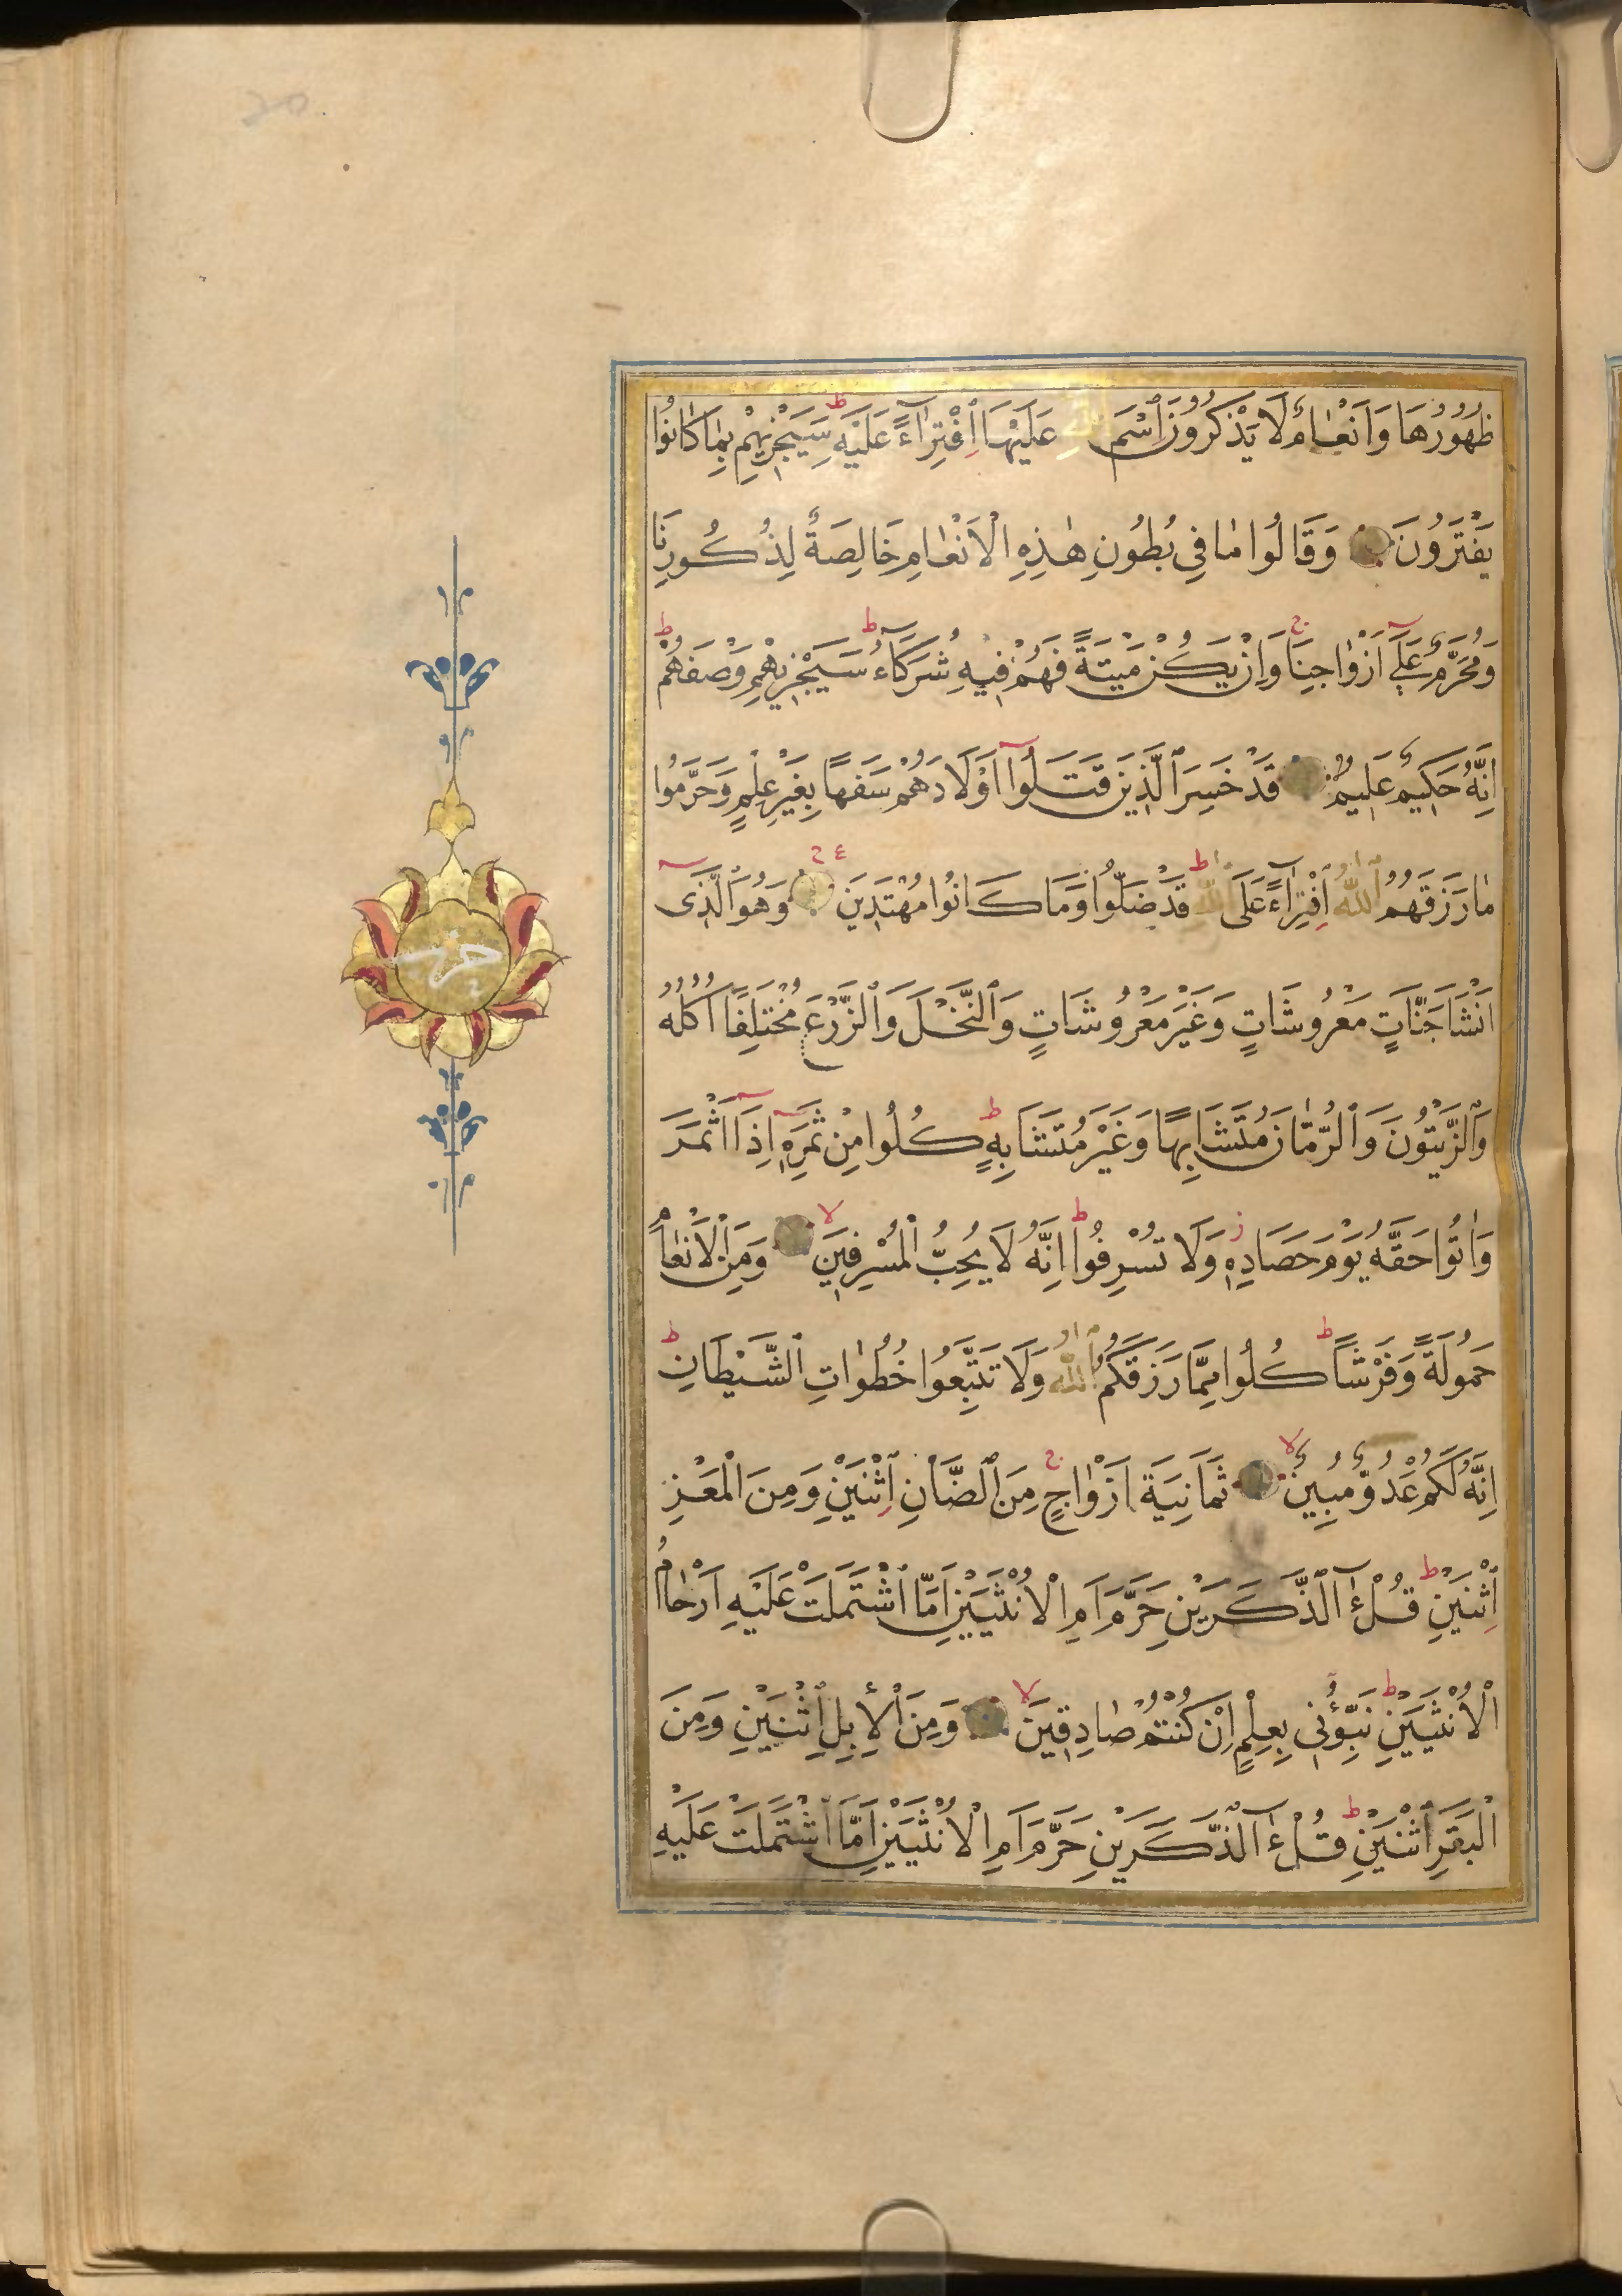 ظُهُورُهَا وَاَنْعَامٌ لَا يَذْكُرُونَ اسْمَ اللّٰهِ عَلَيْهَا اِفْتِرَآءً عَلَيْهِ ط سَيَجْزِيهِمْ بِمَا كَانُوا
يَفْتَرُونَ وَقَالُوا مَا فِي بُطُونِ هٰذِهِ الْاَنْعَامِ خَالِصَةٌ لِذُكُورِنَا
وَمُحَرَّمٌ عَلٰٓى اَزْوَاجِنَا ج وَاِنْ يَكُنْ مَيْتَةً فَهُمْ فِيهِ شُرَكَآءُ ط سَيَجْزِيهِمْ وَصْفَهُمْ ط
اِنَّهُ حَكِيمٌ عَلِيمٌ قَدْ خَسِرَ الَّذِينَ قَتَلُوٓا اَوْلَادَهُمْ سَفَهًا بِغَيْرِ عِلْمٍ وَحَرَّمُوا
مَا رَزَقَهُمُ اللّٰهُ اِفْتِرَآءً عَلَى اللّٰهِ ط قَدْ ضَلُّوا وَمَا كَانُوا مُهْتَدِينَ ع وَهُوَ الَّذِٓى
اَنْشَاَ جَنَّاتٍ مَعْرُوشَاتٍ وَغَيْرَ مَعْرُوشَاتٍ وَالنَّخْلَ وَالزَّرْعَ مُخْتَلِفًا اُكُلُهُ
وَالزَّيْتُونَ وَالرُّمَّانَ مُتَشَابِهًا وَغَيْرَ مُتَشَابِهٍ ط كُلُوا مِنْ ثَمَرِهِٓ اِذَآ اَثْمَرَ
وَاٰتُوا حَقَّهُ يَوْمَ حَصَادِهِ ز وَلَا تُسْرِفُوا ط اِنَّهُ لَا يُحِبُّ الْمُسْرِفِينَ لا وَمِنَ الْاَنْعَامِ
حَمُولَةً وَفَرْشًا ط كُلُوا مِمَّا رَزَقَكُمُ اللّٰهُ وَلَا تَتَّبِعُوا خُطُوَاتِ الشَّيْطَانِ ط
اِنَّهُ لَكُمْ عَدُوٌّ مُبِينٌ لا ثَمَانِيَةَ اَزْوَاجٍ ج مِنَ الضَّاْنِ اثْنَيْنِ وَمِنَ الْمَعْزِ
اثْنَيْنِ ط قُلْ ءٰٓالذَّكَرَيْنِ حَرَّمَ اَمِ الْاُنْثَيَيْنِ اَمَّا اشْتَمَلَتْ عَلَيْهِ اَرْحَامُ
الْاُنْثَيَيْنِ ط نَبِّؤُنِي بِعِلْمٍ اِنْ كُنْتُمْ صَادِقِينَ لا وَمِنَ الْاِبِلِ اثْنَيْنِ وَمِنَ
الْبَقَرِ اثْنَيْنِ ط قُلْ ءٰٓالذَّكَرَيْنِ حَرَّمَ اَمِ الْاُنْثَيَيْنِ اَمَّا اشْتَمَلَتْ عَلَيْهِ
حزب